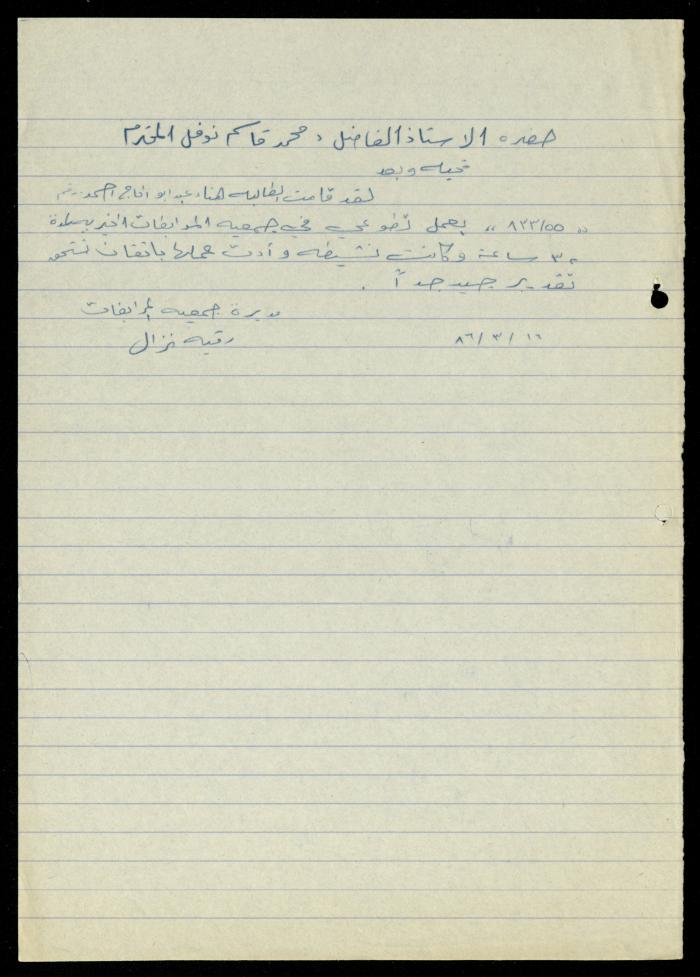 حضره الاستاذ الفاضل ، محمد قاسم نوفل المحترم
تحيه وبعد
لقد قامت الطالبه هناء عبد ابو الحاج احمد رقم
" ٨٣٣/٥٥ " بعمل تطوعي في جمعيه المرابطات الخيريه لمدة
٣٠ ساعة وكانت نشيطه وأدت عملها باتقان تستحق
تقدير جيد جداً .
مديرة جمعيه المرابطات
رقيه نزال
١٦ / ٣ / ٨٦